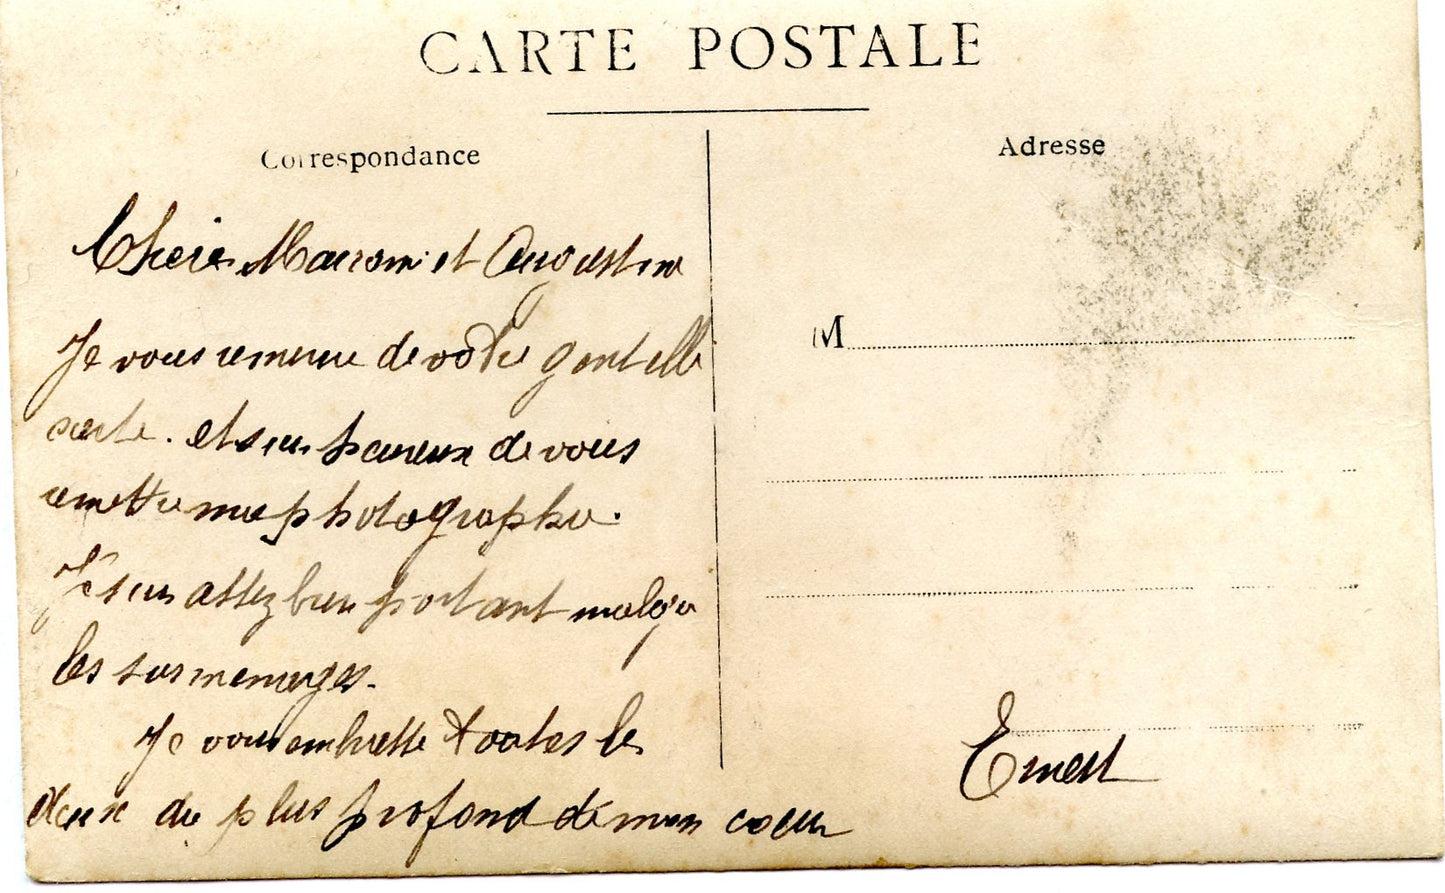 CARTE POSTALE
Correspondance
Adresse
Cheres et Augustine
Je vous remercie de votre gentille
carte. et suis heureux de vous
remettre ma photographie.
Je suis assez bien portant malgré
les surmenages.
Je vous embrasse toutes les
deux du plus profond de mon coeur
M
Ernest